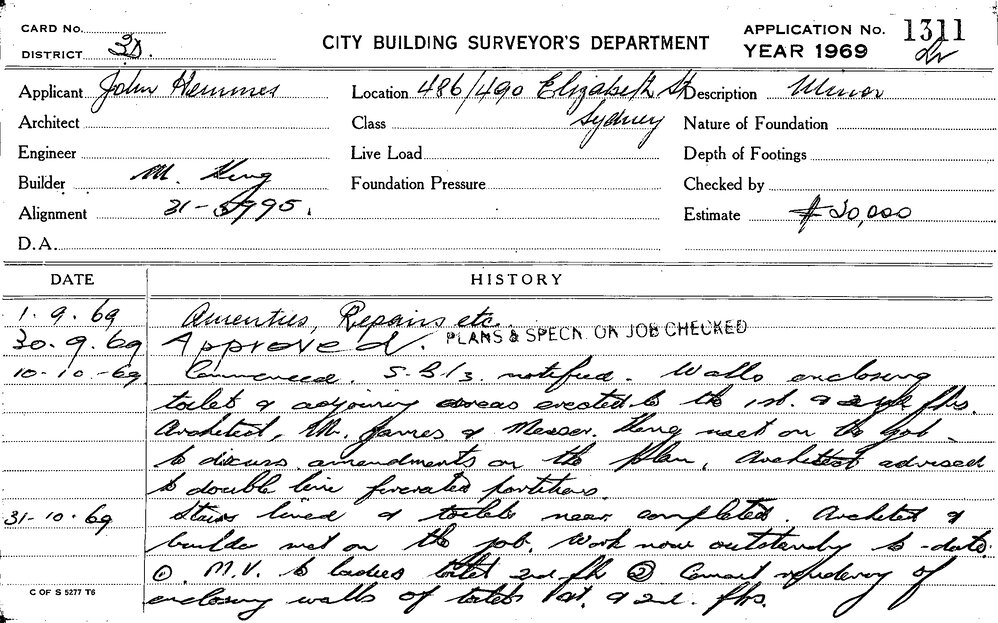 CARD No.
DISTRICT 3D.
CITY BUILDING SURVEYOR'S DEPARTMENT
APPLICATION No. 1311
YEAR 1969
Applicant John Hemmes
Location 486/490 Elizabeth St
Sydney
Description Minor
Architect
Class
Nature of Foundation
Engineer
Live Load
Depth of Footings
Builder M. King
Foundation Pressure
Checked by
Alignment 31-5995.
Estimate $20,000
D.A.
DATE HISTORY
1.9.69 Amenties, Repairs etc.
30.9.69 Approved. PLANS & SPECN. ON JOB CHECKED
10-10-69 Commenced. S.B.I/3. notified. Walls enclosing
toilet & adjoining areas erected to the 1st. & 2nd flrs.
Architect, Mr. James & Messer. King meet on the job
to discuss amendments on the plan. Architect advised
to double line partitions.
31-10-69 Stairs lined & toilets near completed. Architect &
builder met on the job. Work now outstanding to-date.
①. M.V. to ladies toilet 2nd. flr ② Cement rendering of
enclosing walls of toilets 1st. & 2nd. flrs.
C OF S 5277 T6